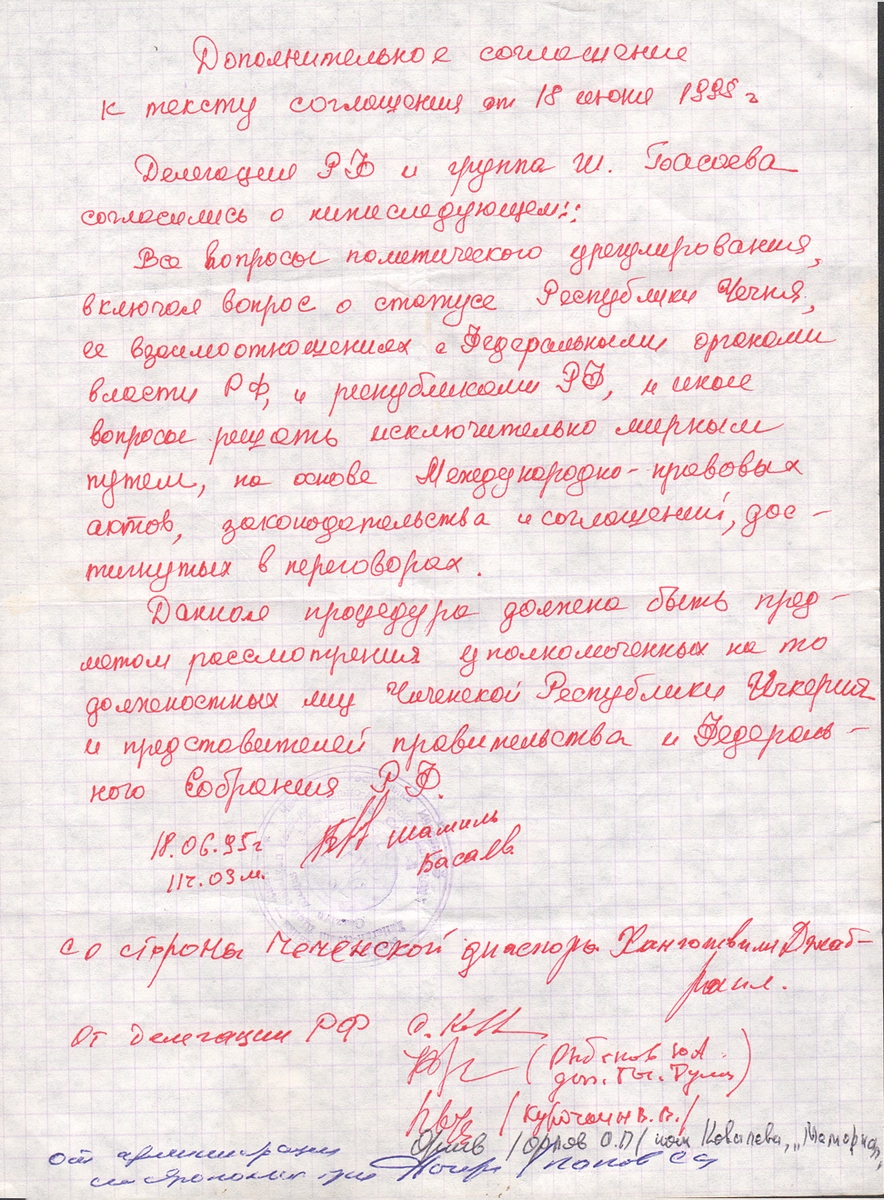 Дополнительное соглашение
к тексту соглашения от 18 июня 1995 г
Делегация РФ и группа Ш. Басаева
согласились о нижеследующем::
Все вопросы политического урегулирования,
включая вопрос о статусе Республики Чечня,
ее взаимоотношениях с Федеральными органами
власти РФ, и республиками РФ, и иные
вопросы решать исключительно мирным
путем, на основе Международно-правовых
актов, законодательства и соглашений, дос-
тигнутых в переговорах.
Данная процедура должна быть пред-
метом рассмотрения уполномоченных на то
должностных лиц Чеченской Республики Ичкерия
и представителей правительства и Федераль-
ного Собрания РФ.
18.06.95г Шамиль
11ч.03м. Басаев
со стороны Чеченской диаспоры Хангошвили Джаб-
раил.
От делегации РФ
(Рыбаков Ю А.
деп. Гос. Думы)
/Курочкин В.В./
Орлов /Орлов О.П/ Ковалева, "Мемориал"
от администрации
Попов